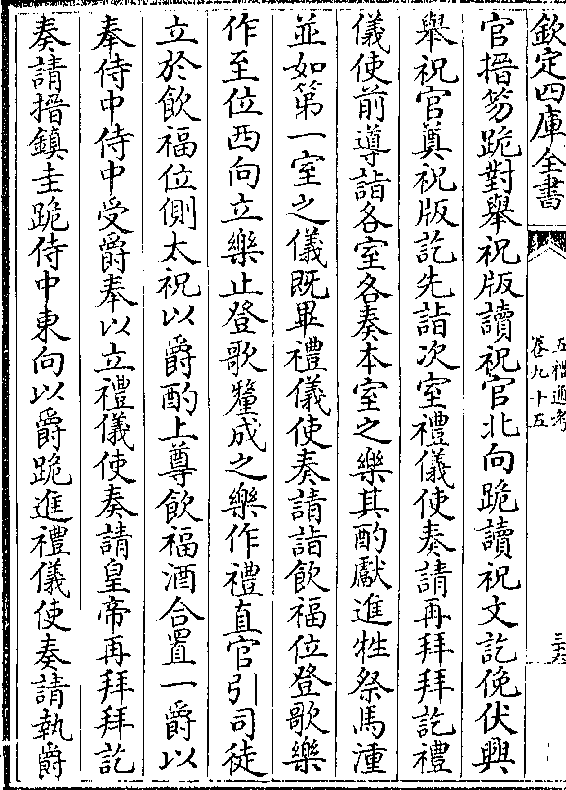 欽定四庫全書
五禮通考
卷九十五
三六
官搢笏跪對舉祝版讀祝官北向跪讀祝文訖俛伏興
舉祝官奠祝版訖先詣次室禮儀使奏請再拜拜訖禮
儀使前導詣各室各奏本室之樂其酌獻進牲祭馬湩
並如第一室之儀既畢禮儀使奏請詣飲福位登歌樂
作至位西向立樂止登歌釐成之樂作禮直官引司徒
立於飲福位側太祝以爵酌上尊飲福酒合置一爵以
奉侍中侍中受爵奉以立禮儀使奏請皇帝再拜拜訖
奏請搢鎮圭跪侍中東向以爵跪進禮儀使奏請執爵